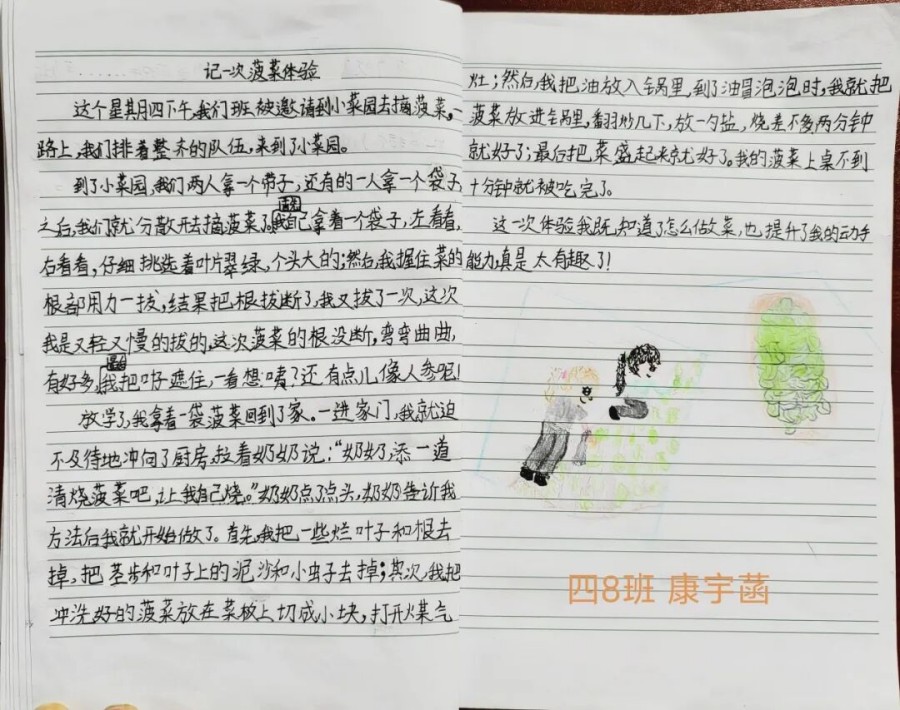 记一次菠菜体验
这个星期四下午,我们班被邀请到小菜园去摘菠菜,一
路上,我们排着整齐的队伍,来到了小菜园。
到了小菜园,我们两人拿一个带子,还有的一人拿一个袋子,
之后,我们就分散开去摘菠菜了。首先我自己拿着一个袋子,左看看,
右看看,仔细挑选着叶片翠绿,个头大的;然后,我握住菜的
根部用力一拔,结果把根拔断了,我又拔了一次,这次
我是又轻又慢的拔的,这次菠菜的根没断,弯弯曲曲,
有好多,最后我把叶子遮住,一看想:咦?还有点儿像人参呢!
放学了,我拿着一袋菠菜回到了家。一进家门,我就迫
不及待地冲向了厨房,拉着奶奶说:“奶奶,添一道
清烧菠菜吧,让我自己烧。”奶奶点了点头,奶奶告诉我
方法后我就开始做了。首先,我把一些烂叶子和根去
掉,把茎步和叶子上的泥沙和小虫子去掉;其次,我把
冲洗好的菠菜放在菜板上切成小块,打开煤气
灶;然后,我把油放入锅里,到了油冒泡泡时,我就把
菠菜放进锅里,翻炒几下,放一勺盐,烧差不多两分钟
就好了;最后把菜盛起来就好了。我的菠菜上桌不到
十分钟就被吃完了。
这一次体验我既知道了怎么做菜,也提升了我的动手
能力,真是太有趣了!
四8班 康宇菡